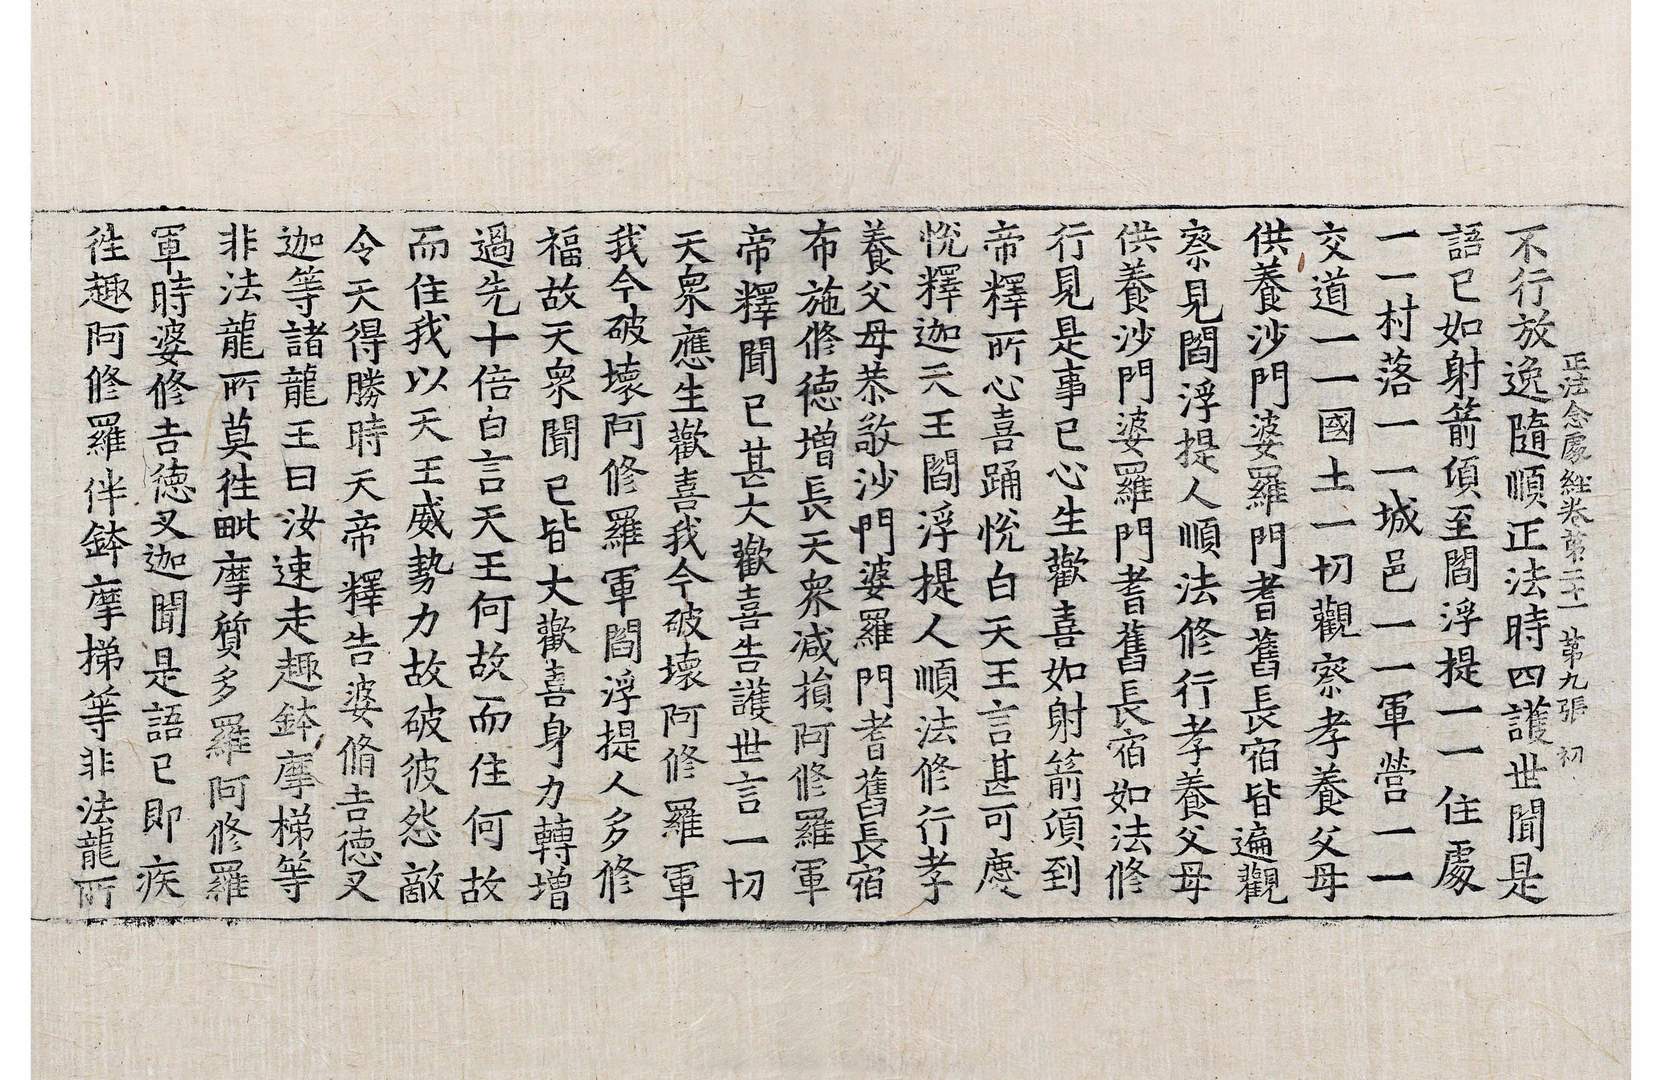 正法念處經卷第二十一　第九張　初
不行放逸隨順正法時四護世聞是
語已如射箭頃至閻浮提一一住處
一一村落一一城邑一一軍營一一
交道一一國土一切觀察孝養父母
供養沙門婆羅門耆舊長宿皆遍觀
察見閻浮提人順法修行孝養父母
供養沙門婆羅門耆舊長宿如法修
行見是事已心生歡喜如射箭頃到
帝釋所心喜踊悅白天王言甚可慶
悅釋迦天王閻浮提人順法修行孝
養父母恭敬沙門婆羅門耆舊長宿
布施修德增長天衆減損阿修羅軍
帝釋聞已甚大歡喜告護世言一切
天衆應生歡喜我今破壞阿修羅軍
我今破壞阿修羅軍閻浮提人多修
福故天衆聞已皆大歡喜身力轉增
過先十倍白言天王何故而住何故
而住我以天王威勢力故破彼怨敵
令天得勝時天帝釋告婆脩吉德叉
迦等諸龍王曰汝速走趣鉢摩梯等
非法龍所莫往毗摩質多羅阿修羅
軍時婆修吉德叉迦聞是語已即疾
往趣阿修羅伴鉢摩梯等非法龍所